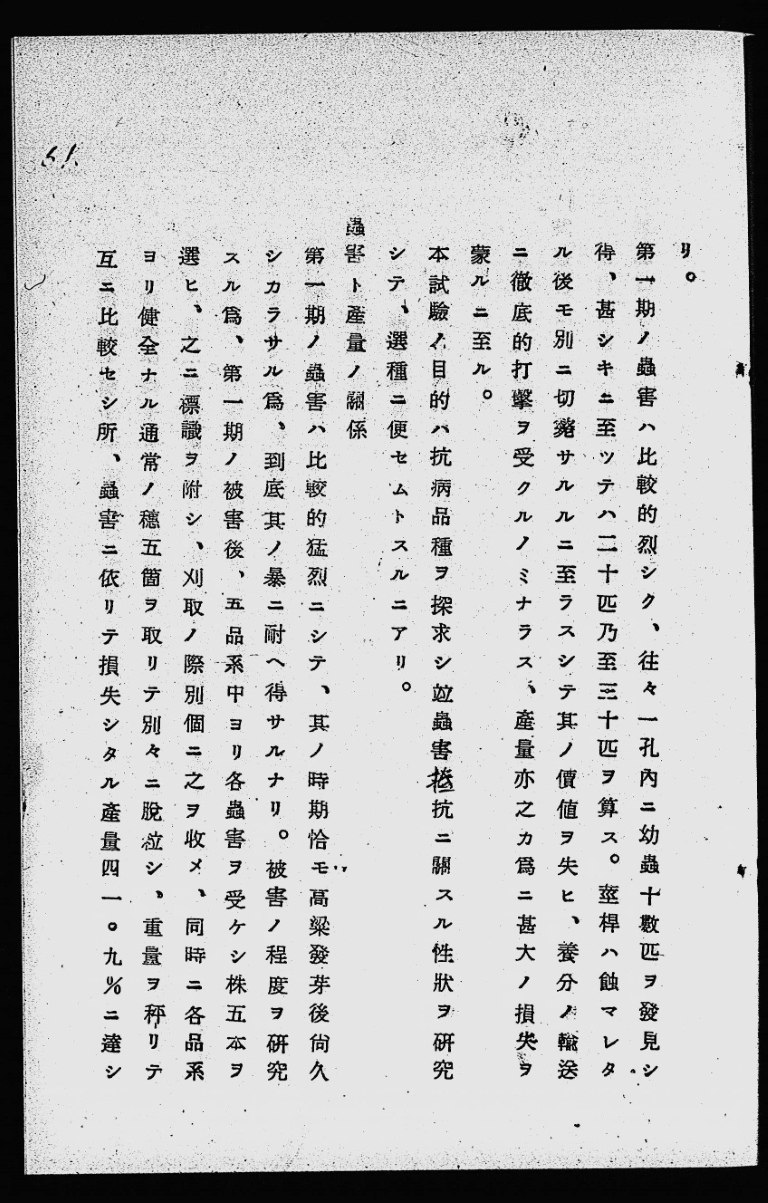 51.
リ。
第一期ノ蟲害ハ比較的烈シク、往々一孔內ニ幼蟲十數匹ヲ發見シ
得、甚シキニ至ツテハ二十匹乃至三十匹ヲ算ス。莖桿ハ蝕マレタ
ル後モ別ニ切斃サルルニ至ラスシテ其ノ價値ヲ失ヒ、養分ノ輸送
ニ徹底的打擊ヲ受クルノミナラス、產量亦之カ爲ニ甚大ノ損失ヲ
蒙ルニ至ル。
本試驗ノ目的ハ抗病品種ヲ探求シ竝蟲害抵抗ニ關スル性狀ヲ硏究
シテ、選種ニ便セムトスルニアリ。
蟲害ト產量ノ關係
第一期ノ蟲害ハ比較的猛烈ニシテ、其ノ時期恰モ高粱發芽後尙久
シカラサル爲、到底其ノ暴ニ耐ヘ得サルナリ。被害ノ程度ヲ硏究
スル爲、第一期ノ被害後、五品系中ヨリ各蟲害ヲ受ケシ株五本ヲ
選ヒ、之ニ標識ヲ附シ、刈取ノ際別個ニ之ヲ收メ、同時ニ各品系
ヨリ健全ナル通常ノ穗五箇ヲ取リテ別々ニ脫粒シ、重量ヲ秤リテ
互ニ比較セシ所、蟲害ニ依リテ損失シタル產量四一。九%ニ達シ